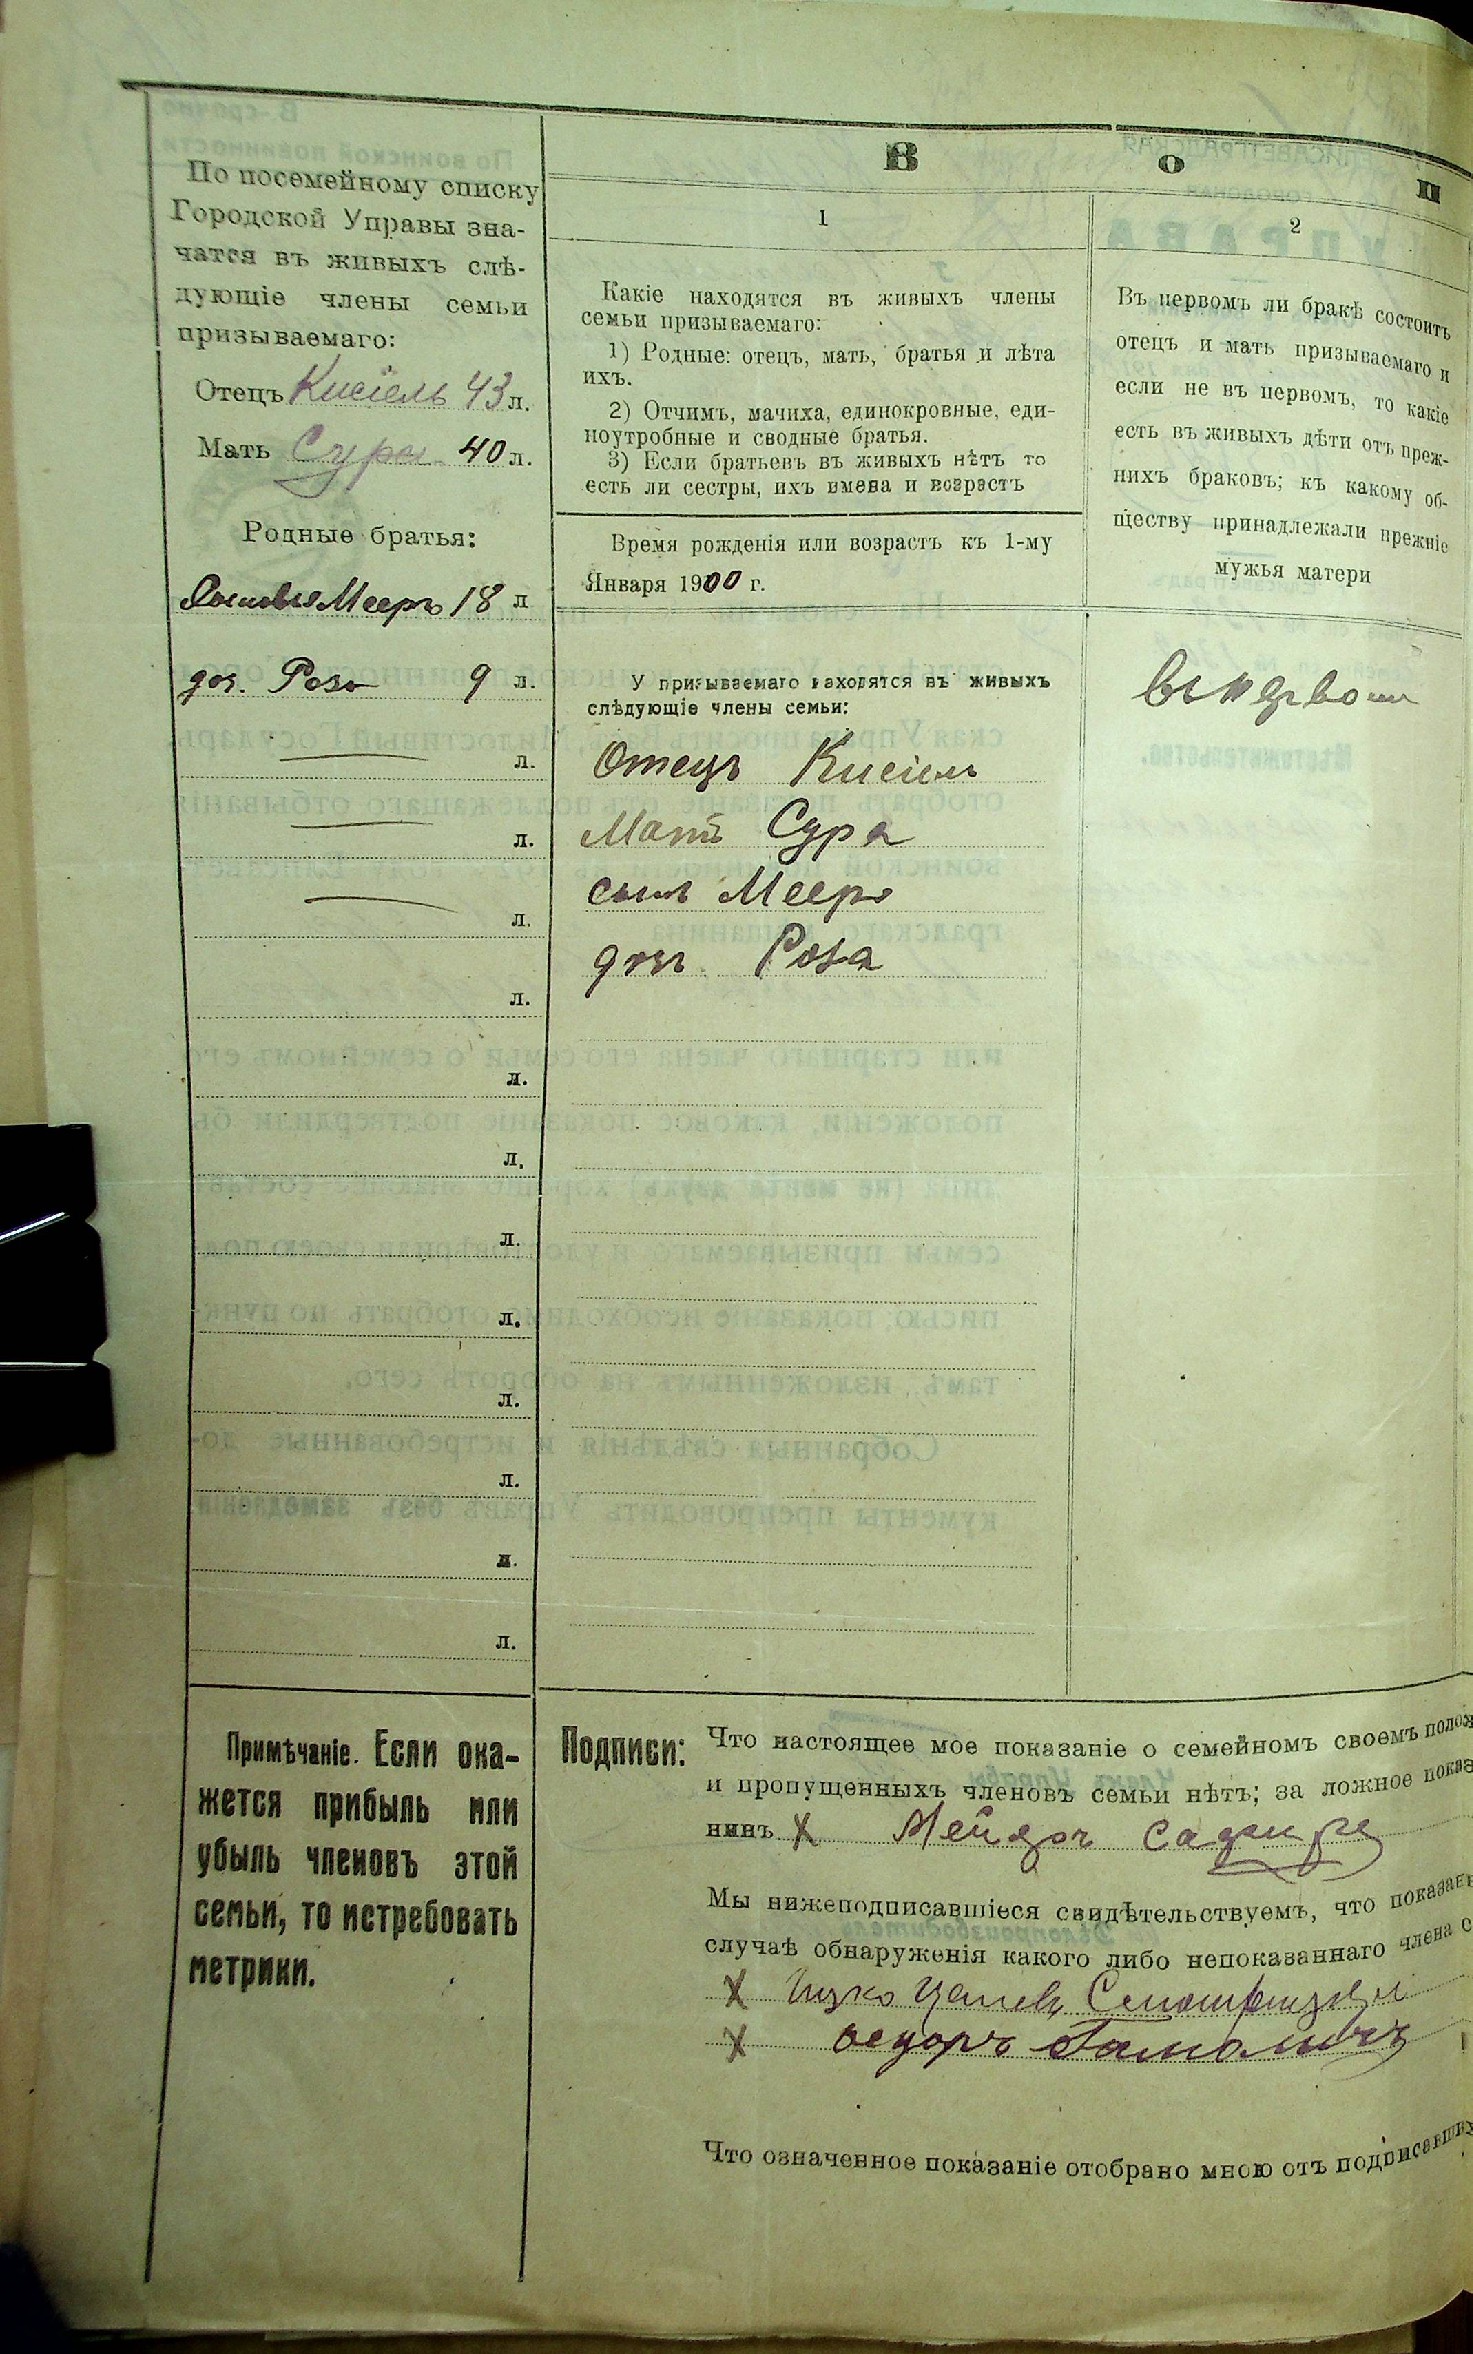 По посемейному списку
Городской Управы зна-
чатся въ живыхъ слѣ-
дующіе члены семьи
призываемаго:
Отецъ Кисіель 43 л.
Мать Сура 40 л.
Родные братья:
Сыновья Мееръ 18 л
доч. Роза 9 л.
л.
л.
л.
л.
л.
л.
л.
л.
л.
л.
л.
л.
Примѣчаніе. Если ока-
жется прибыль или
убыль членовъ этой
семьи, то истребовать
метрики.
В о п
1
Какіе находятся въ живыхъ члены
семьи призываемаго:
1) Родные: отецъ, мать, братья и лѣта
ихъ.
2) Отчимъ, мачиха, единокровные, еди-
ноутробные и сводные братья.
3) Если братьевъ въ живыхъ нѣтъ то
есть ли сестры, ихъ имена и возрастъ
Время рожденія или возрастъ къ 1-му
Января 1900 г.
У призываемаго находятся въ живыхъ
слѣдующіе члены семьи:
Отецъ Кисіель
Мать Сура
сынъ Мееръ
доч. Роза
2
Въ первомъ ли бракѣ состоитъ
отецъ и мать призываемаго и
если не въ первомъ, то какіе
есть въ живыхъ дѣти отъ преж-
нихъ браковъ; къ какому об-
ществу принадлежали прежніе
мужья матери
въ первом
Подписи: Что настоящее мое показаніе о семейномъ своемъ полож
и пропущенныхъ членовъ семьи нѣтъ; за ложное показа
нинъ X
Мы нижеподписавшіеся свидѣтельствуемъ, что показан
случаѣ обнаруженія какого либо непоказаннаго члена с
X
X
Что означенное показаніе отобрано мною отъ подписавших